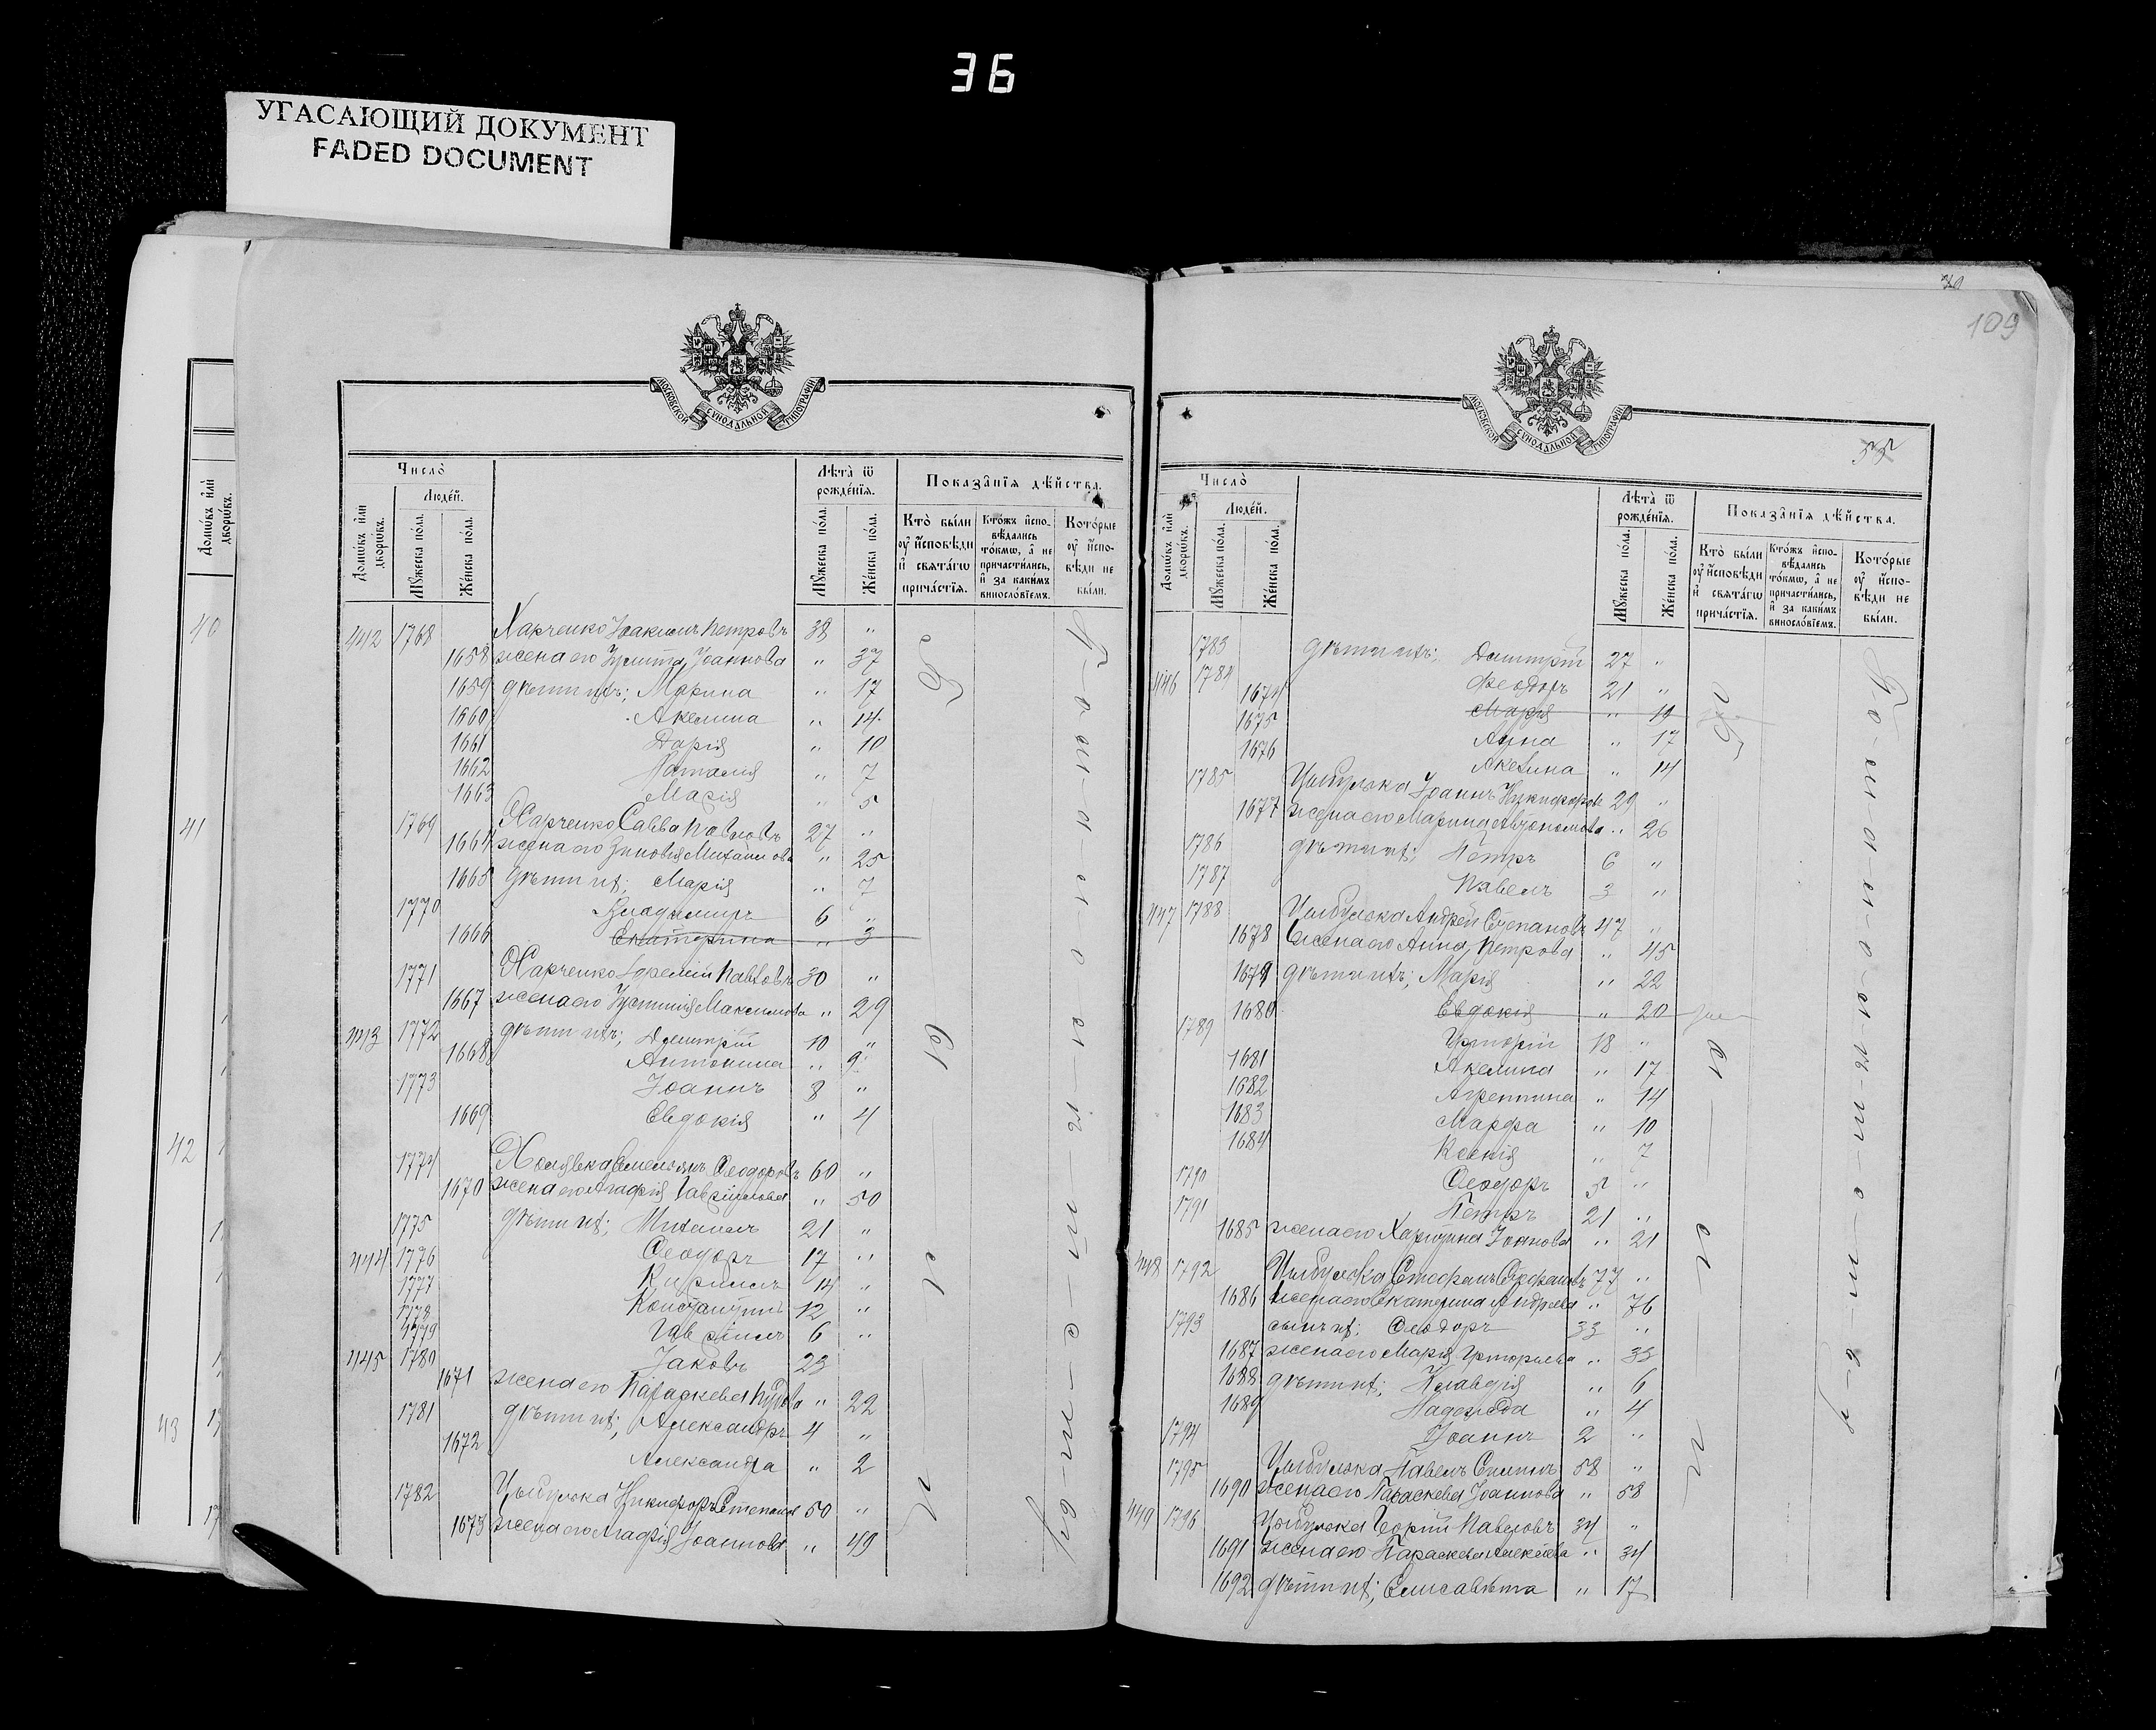 36
УГАСАЮЩИЙ ДОКУМЕНТ
FADED DOCUMENT
Домѡвъ и҆лѝ дворѡвъ.
40
41
42
43
МОСКОВСКОЙ СѴНОДАЛЬНОЙ ТИПОГРАФІИ
Число̀
Домѡвъ и҆лѝ дворѡвъ.
Людей.
Мꙋжеска по́ла.
Же́нска по́ла.
Лѣта̀ ѿ рожде́нїѧ.
Мꙋжеска по́ла.
Же́нска по́ла.
Показа̂нїѧ дѣ́йства.
Кто̀ бы́ли оу҆ и҆сповѣди и҆ свѧта́гѡ прича́стїѧ.
Кто́жъ и҆спо-вѣдались то́кмѡ, а҆ не причасти́лись, и҆ за каки́мъ винослове́емъ.
Кото́рые оу҆ и҆спо-вѣди не бы́ли.
442 1768 Харченко Іоакимъ Петровъ 38 "
1658 жена его Іулитта Іоаннова " 37
1659 дѣти ихъ: Марина " 17
1660 Акелина " 14
1661 Дарія " 10
1662 Наталія " 7
1663 Марія " 5
1769 Харченко Савва Павловъ 27 "
1664 жена его Зиновія Михаилова " 25
1665 дѣти ихъ: Марія " 7
1770 Владимиръ 6 "
1666 Екатерина " 3
1771 Харченко Іеремій Павловъ 30 "
1667 жена его Іустинія Максимова " 29
443 1772 дѣти ихъ: Димитрій 10 "
1668 Антонина " 9
1773 Іоаннъ 8 "
1669 Евдокія " 4
1774 Холявка Емельянъ Ѳеодоровъ 60 "
1670 жена его Агафія Гавріилова " 50
1775 дѣти ихъ: Михаилъ 21 "
444 1776 Ѳеодоръ 17 "
1777 Кириллъ 14 "
1778 Константинъ 12 "
1779 Гавріилъ 6 "
445 1780 Іаковъ 23
1671 жена его Параскева " 22
1781 дѣти ихъ: Александръ 4 "
1672 Александра " 2
1782 Цыбулька Никифоръ Степановъ 50 "
1673 жена его Агафія Іоаннова " 49
109
55
МОСКОВСКОЙ СѴНОДАЛЬНОЙ ТИПОГРАФІИ
Число̀
Домѡвъ и҆лѝ дворѡвъ.
Людей.
Мꙋжеска по́ла.
Же́нска по́ла.
Лѣта̀ ѿ рожде́нїѧ.
Мꙋжеска по́ла.
Же́нска по́ла.
Показа̂нїѧ дѣ́йства.
Кто̀ бы́ли оу҆ и҆сповѣди и҆ свѧта́гѡ прича́стїѧ.
Кто́жъ и҆спо-вѣдались то́кмѡ, а҆ не причасти́лись, и҆ за каки́мъ винослове́емъ.
Кото́рые оу҆ и҆спо-вѣди не бы́ли.
1783 дѣти ихъ: Димитрій 27 "
446 1784 Ѳеодоръ 21 "
1674 Марія " 19
1675 Анна " 17
1676 Акелина " 14
1785 Цыбулька Іоаннъ Никифоровъ 29 "
1677 жена его Марина Автономова " 26
1786 дѣти ихъ: Петръ 6 "
1787 Павелъ 3 "
447 1788 Цыбулька Андрей Степановъ 47 "
1678 жена его Анна Петрова " 45
1679 дѣти ихъ: Марія " 22
1680 Евдокія " 20
1789 Григорій 18 "
1681 Акелина " 17
1682 Агреппина " 14
1683 Марфа " 10
1684 Ксенія " 7
1790 Ѳеодоръ 5 "
1791 Петръ 21 "
1685 жена его Харитина Іоаннова " 21
448 1792 Цыбулька Стефанъ Стефановъ 77 "
1686 жена его Екатерина Андреева " 76
1793 сынъ ихъ: Ѳеодоръ 33 "
1687 жена его Марія Григорьева " 33
1688 дѣти ихъ: Клавдія " 6
1689 Надежда " 4
1794 Іоаннъ 2 "
1795 Цыбулька Павелъ 58 "
1690 жена его Параскева Іоаннова " 58
449 1796 Цыбулька Георгій Павловъ 34 "
1691 жена его Параскева Алексіева " 34
1692 дѣти ихъ: Елисавета " 17